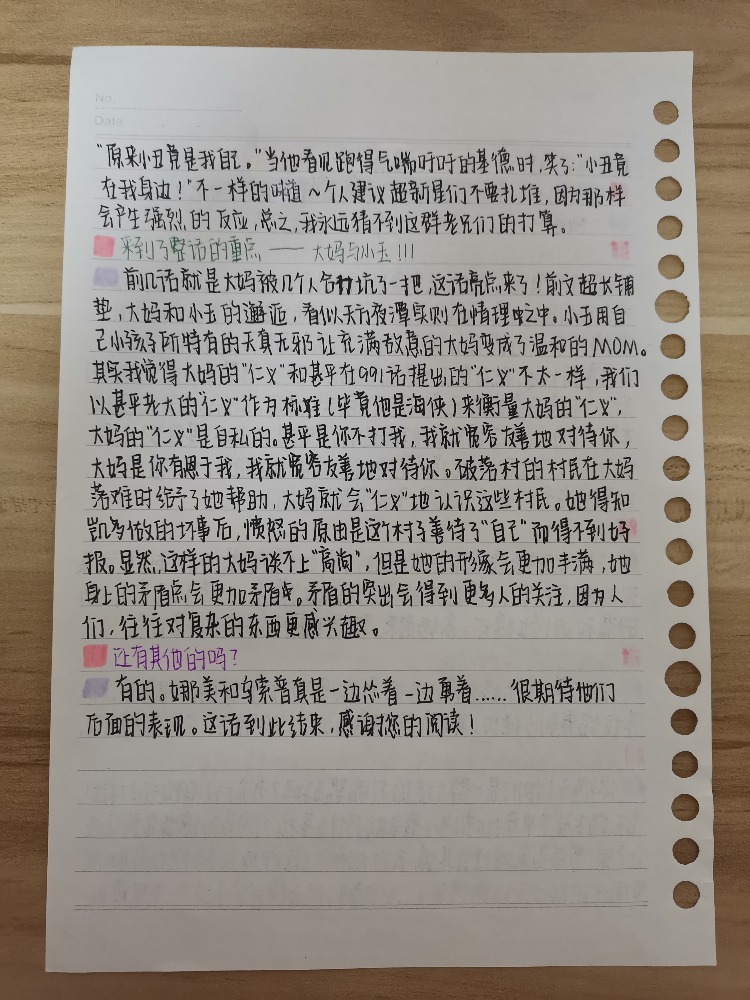 No.
Date
"原来小丑竟是我自己。"当他看见跑得气喘吁吁的基德时,笑了:"小丑竟
在我身边!"不一样的味道~个人建议超新星们不要扎堆,因为那样
会产生强烈的反应,总之,我永远猜不到这群老兄们的打算。
来到了整话的重点——大妈与小玉!!!
前几话就是大妈被几个人合力坑了一把,这话亮点来了!前文超长铺
垫,大妈和小玉的邂逅,看似天方夜潭实则在情理之中。小玉用自
己小孩子所特有的天真无邪让充满敌意的大妈变成了温和的MOM。
其实我觉得大妈的"仁义"和甚平在991话提出的"仁义"不太一样,我们
以甚平老大的"仁义"作为标准(毕竟他是海侠)来衡量大妈的"仁义",
大妈的"仁义"是自私的。甚平是你不打我,我就宽容友善地对待你,
大妈是你有恩于我,我就宽容友善地对待你。破落村的村民在大妈
落难时给予了她帮助,大妈就会"仁义"地认识这些村民。她得知
凯多做的坏事后,愤怒的原由是这个村子善待了"自己"而得不到好
报。显然,这样的大妈谈不上"高尚",但是她的形象会更加丰满,她
身上的矛盾点会更加矛盾。矛盾的突出会得到更多人的关注,因为人
们,往往对复杂的东西更感兴趣。
还有其他的吗?
有的。娜美和乌索普真是一边怂着一边勇着……很期待他们
后面的表现。这话到此结束,感谢您的阅读!